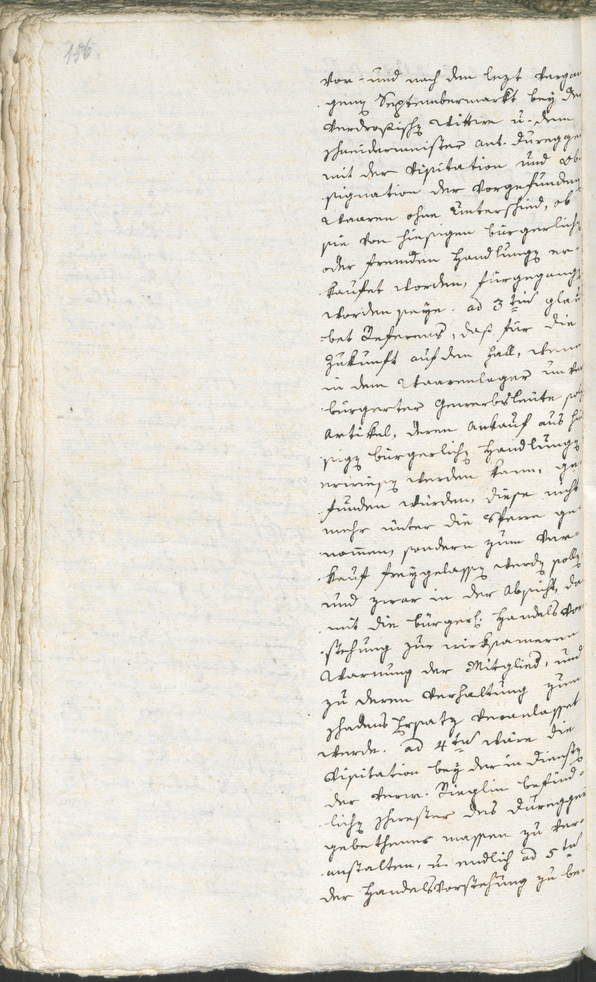 156.
vor- und nach dem lezt vergan
genen Septembermarkt bey der
Verdroßischen Wittwe u. dem
Schneidermeister Ant. Duregger
mit der Visitation und Ob
signation der vorgefundenen
Waaren ohne Unterschied, ob
sie von hiesigen bürgerlichen
oder fremden Handlungen er-
kaufet worden, fürgegangen
worden seye. ad 3tium glau
bet Referens, daß für die
Zukunft auf den Fall, wenn
in dem Waarenlager unver
bürgerter Gewerbsleute solche
Artikel, deren Ankauf aus hie
sigen bürgerlichen Handlungen
erwiesen werden kann, ge
funden würden, diese nicht
mehr unter die Sperre ge
nommen, sondern zum Ver-
kauf freygelassen werden sollen
und zwar in der Absicht, da
mit die bürgerl. Handelsvor
stehung zur wirksameren
Warnung der Mitglied, und
zu deren Verhaltung zum
Schadens Ersatz veranlasset
werde. ad 4tum wäre die
Visitation bey der in Diensten
der Verw. Rieglin befind-
lichen Schwester des Duregger
gebethener massen zu ver-
anstalten, u. endlich ad 5tum
der Handelsvorstehung zu be-